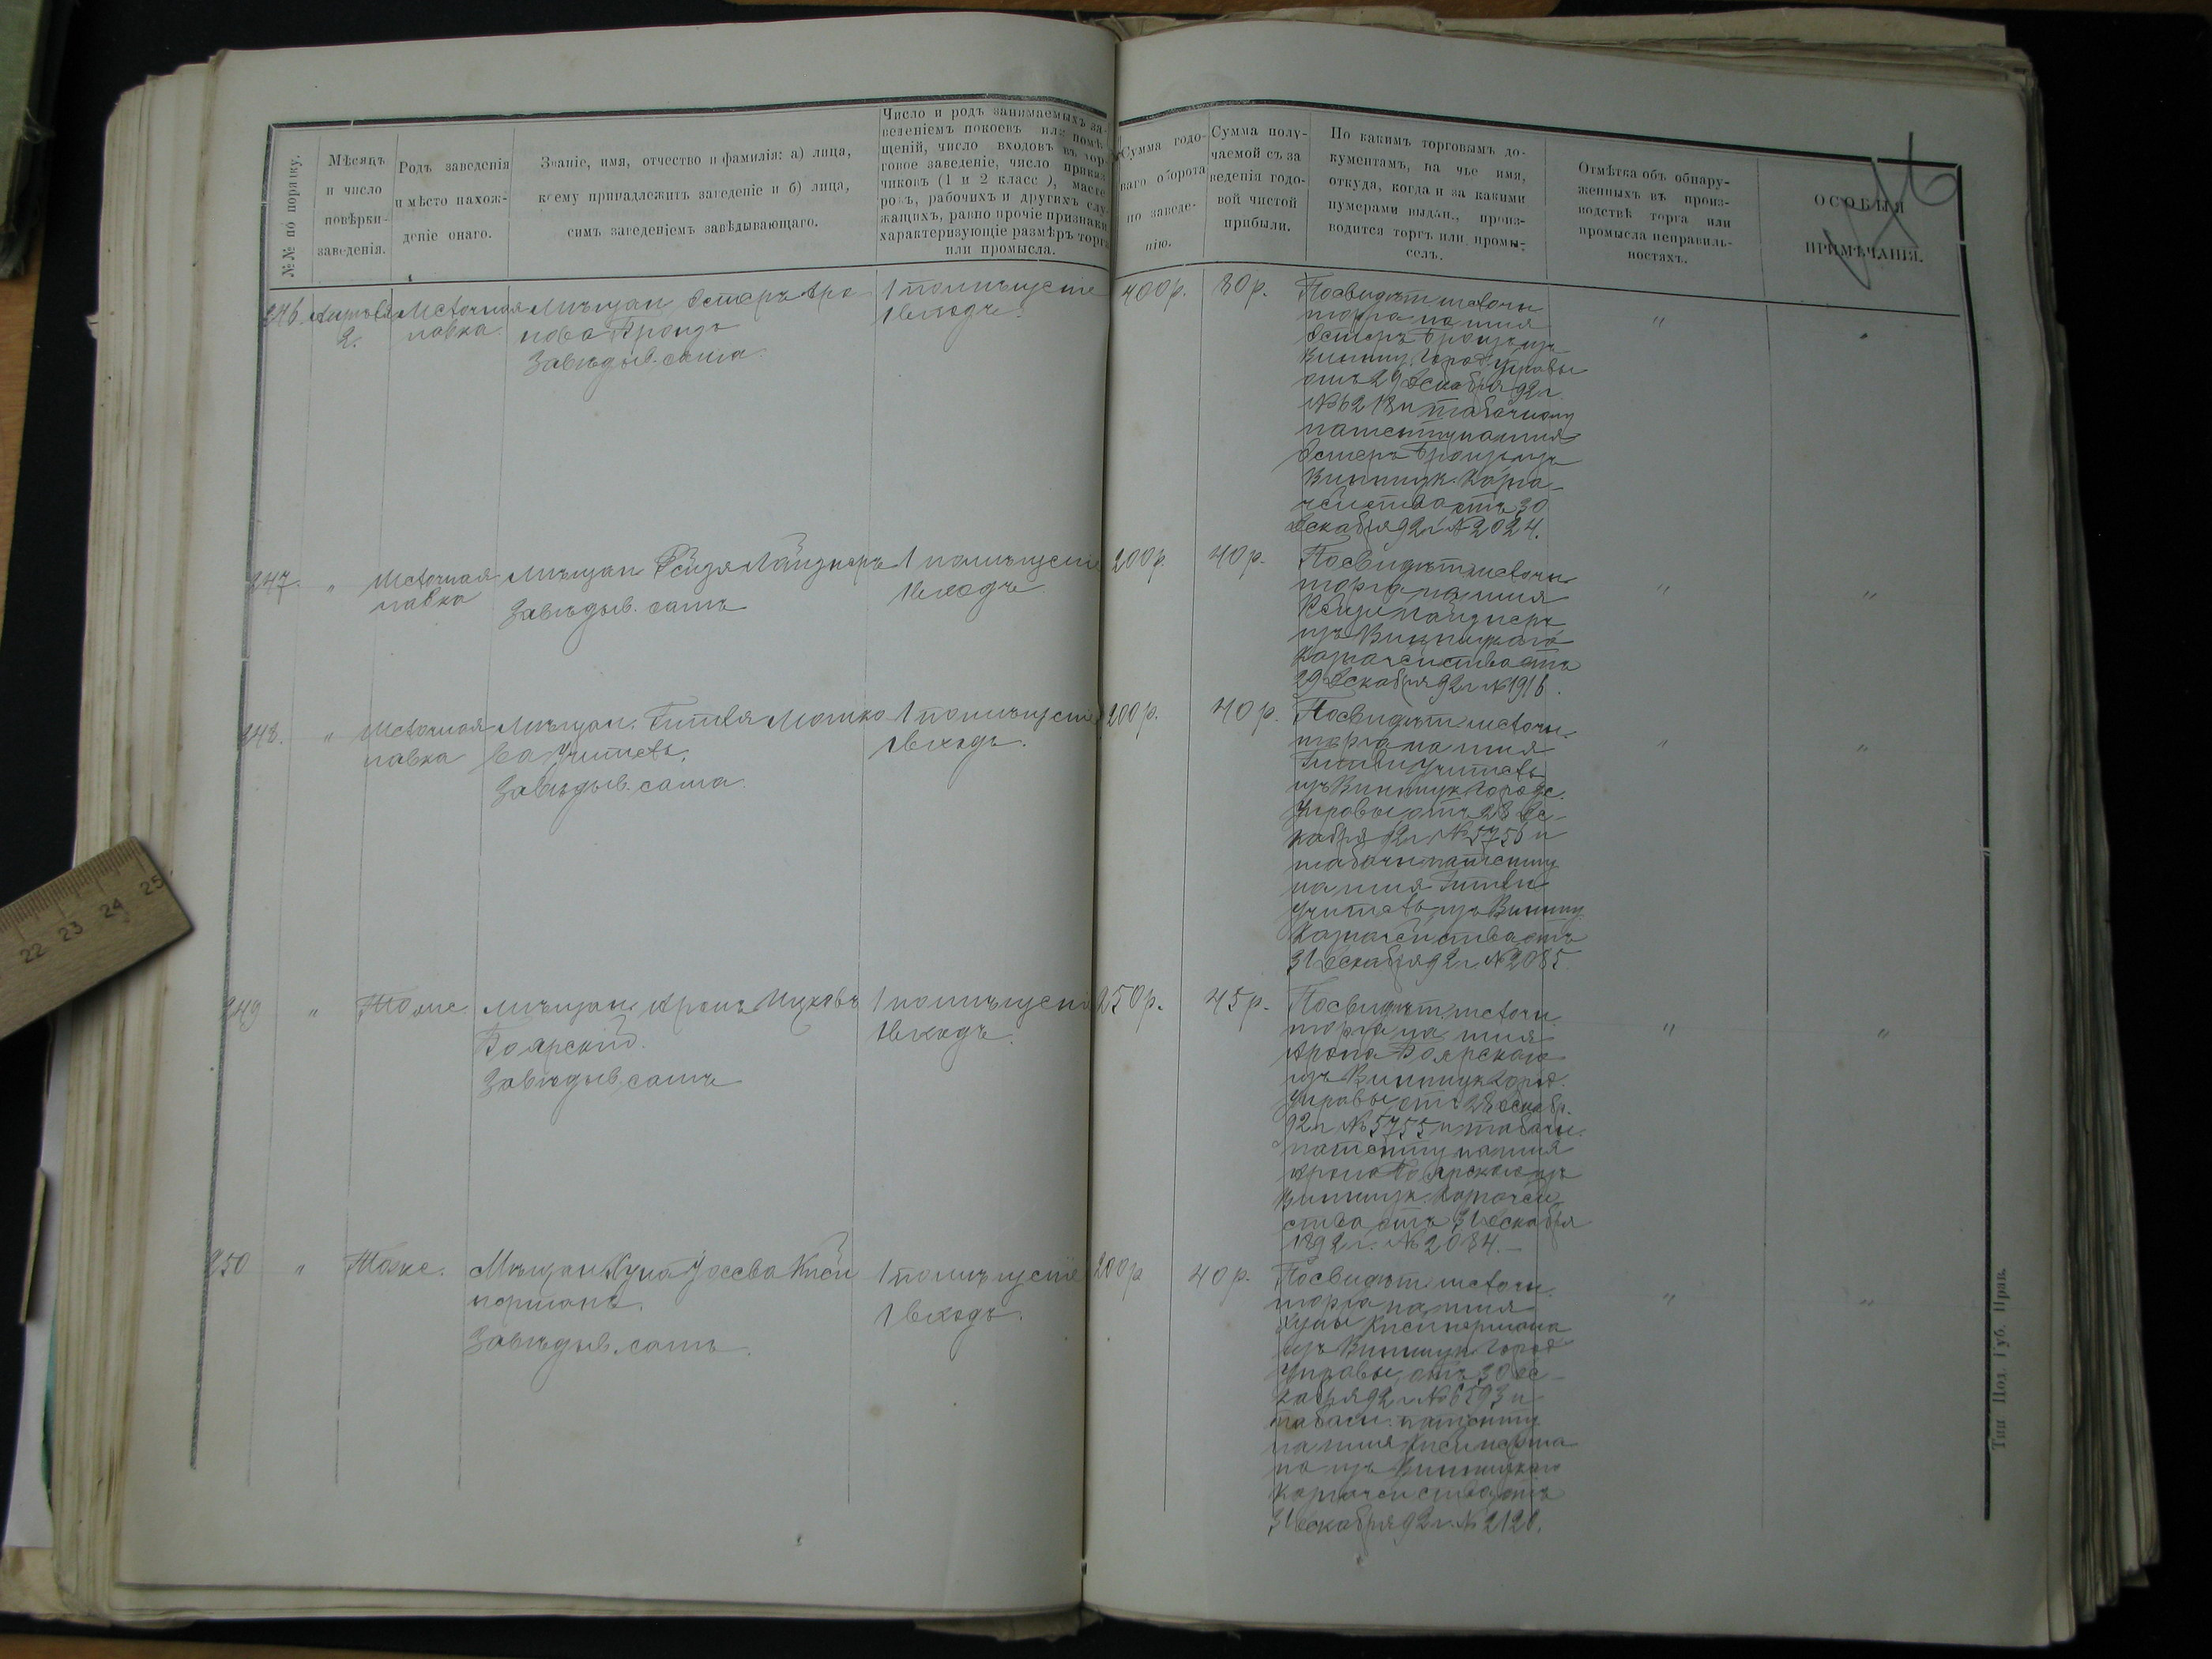 №№ по порядку.
Мѣсяцъ
и число
повѣрки
заведенія.
Родъ заведенія
и мѣсто нахож-
деніе онаго.
Званіе, имя, отчество и фамилія: а) лица,
коему принадлежитъ заведеніе и б) лица,
симъ заведеніемъ завѣдывающаго.
Число и родъ занимаемыхъ за-
веденіемъ покоевъ или помѣ-
щеній, число входовъ въ тор-
говое заведеніе, число приказ
чиковъ (1 и 2 класс), масте
ровъ, рабочихъ и другихъ слу-
жащихъ, равно прочіе признаки
характеризующіе размѣръ торга
или промысла.
Сумма годо-
ваго оборота
по заведе-
нію.
Сумма полу-
чаемой съ за
веденія годо-
вой чистой
прибыли.
По какимъ торговымъ до-
кументамъ, на чье имя,
откуда, когда и за какими
нумерами выдан., произ-
водится торгъ или промы-
селъ.
Отмѣтка объ обнару-
женныхъ въ произ-
водствѣ торга или
промысла неправиль-
ностяхъ.
ОСОБЫЯ
ПРИМѢЧАНІЯ.
246.
2.
Мелочная
лавка.
Мѣщан. Эстеръ Аро
нова
Завѣдыв. сама.
1 помѣщеніе
1 входъ.
400 р.
80 р.
По свидѣт. мелочн.
торга на имя
Эстеръ
Винниц. Город. управы
отъ 29 Декабря 92 г.
и табачному
патенту на имя
Эстеръ
Винницк. Казна-
чейства отъ 30
Декабря 92 г. № 2024.
"
247. "
Мелочная
лавка
Мѣщан.
Завѣдыв. самъ
1 помѣщеніе
1 входъ
200 р.
40 р.
По свидѣт. мелочн.
торга на имя
изъ Винницкаго
Казначейства отъ
29 Декабря 92 г. № 1916.
" "
248. "
Мелочная
лавка
Мѣщан. Гитля Мошко
ва Учитель.
Завѣдыв. сама.
1 помѣщеніе
1 входъ.
200 р.
40 р.
По свидѣт. мелочн.
торга на имя
Гитли Учитель
изъ Винницк. Городс.
Управы отъ 28 Де-
кабря 92 г. № 5756 и
табачн. патенту
на имя Гитли
Учитель изъ Винниц.
Казначейства отъ
31 Декабря 92 г. № 2085.
" "
249 "
Тоже.
Мѣщан. Аронъ Ицковъ
Боярскій.
Завѣдыв. самъ
1 помѣщеніе
1 входъ.
250 р.
45 р.
По свидѣт. мелочн.
торга на имя
Арона Боярскаго
изъ Винницк. Город.
Управы отъ 28 Декабр.
92 г. № 5755 и табачн.
патенту на имя
Арона Боярскаго изъ
Винницк. Казначей-
ства отъ 31 Декабря
1892 г. № 2084.
" "
250 "
Тоже.
Мѣщан.
Завѣдыв. самъ.
1 помѣщеніе
1 входъ.
200 р
40 р.
По свидѣт. мелочн.
торга на имя
изъ Винницк. Город
Управы, отъ 30 Де-
кабря 92 г. № 6593 и
табачн. патенту
на имя
изъ Винницкаго
Казначейства отъ
31 Декабря 92 г. № 2120.
" "
Тип. Под. Губ. Прав.